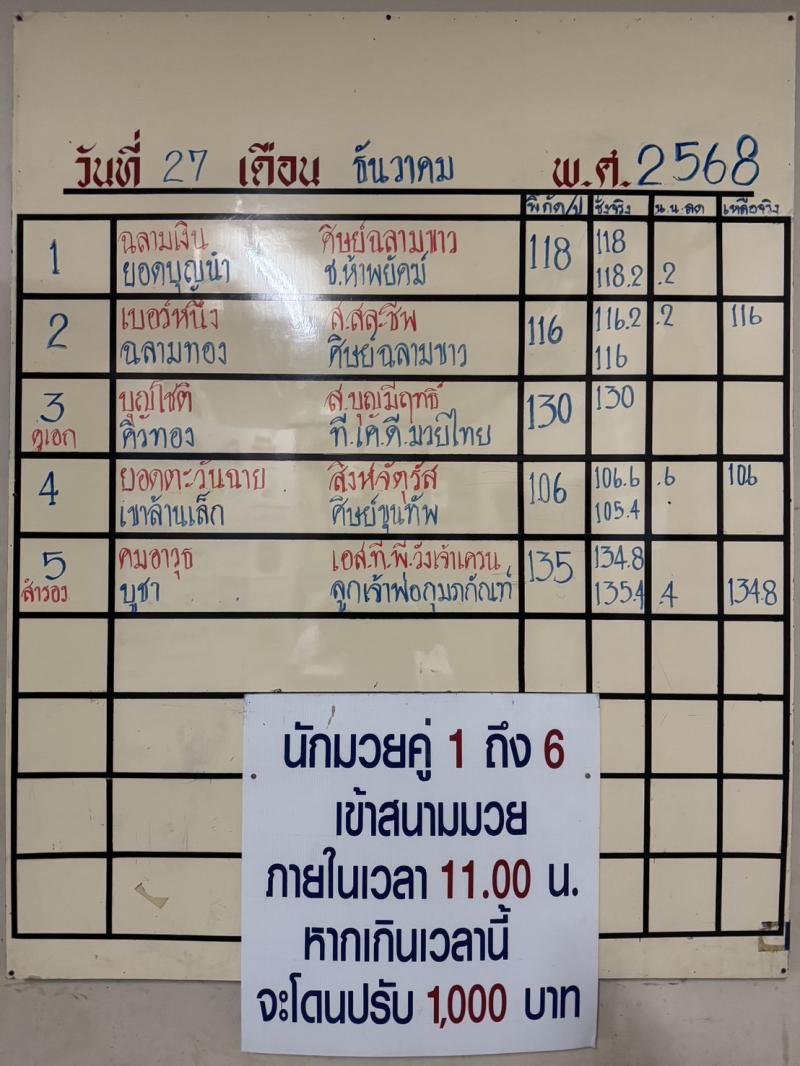 วันที่ 27 เดือน ธันวาคม พ.ศ. 2568
พิกัด/ป ชั่งจริง น.น.ลด เหลือจริง
1 ฉลามเงิน ศิษย์ฉลามขาว 118 118
ยอดบุญนำ ช.ห้าพยัคฆ์ 118.2 .2
2 เบอร์หนึ่ง ส.สละชีพ 116 116.2 .2 116
ฉลามทอง ศิษย์ฉลามขาว 116
3 บุญโชติ ส.บุญมีฤทธิ์ 130 130
คู่เอก คิวทอง ที.เค.ดี.มวยไทย
4 ยอดตะวันฉาย สิงห์จัตุรัส 106 106.6 .6 106
เขาล้านเล็ก ศิษย์ขุนทัพ 105.4
5 คมอาวุธ เอส.ที.พี.วังเจ้าเครน 135 134.8
สำรอง บูชา ลูกเจ้าพ่อกุมภกัณฑ์ 135.4 .4 134.8
นักมวยคู่ 1 ถึง 6
เข้าสนามมวย
ภายในเวลา 11.00 น.
หากเกินเวลานี้
จะโดนปรับ 1,000 บาท